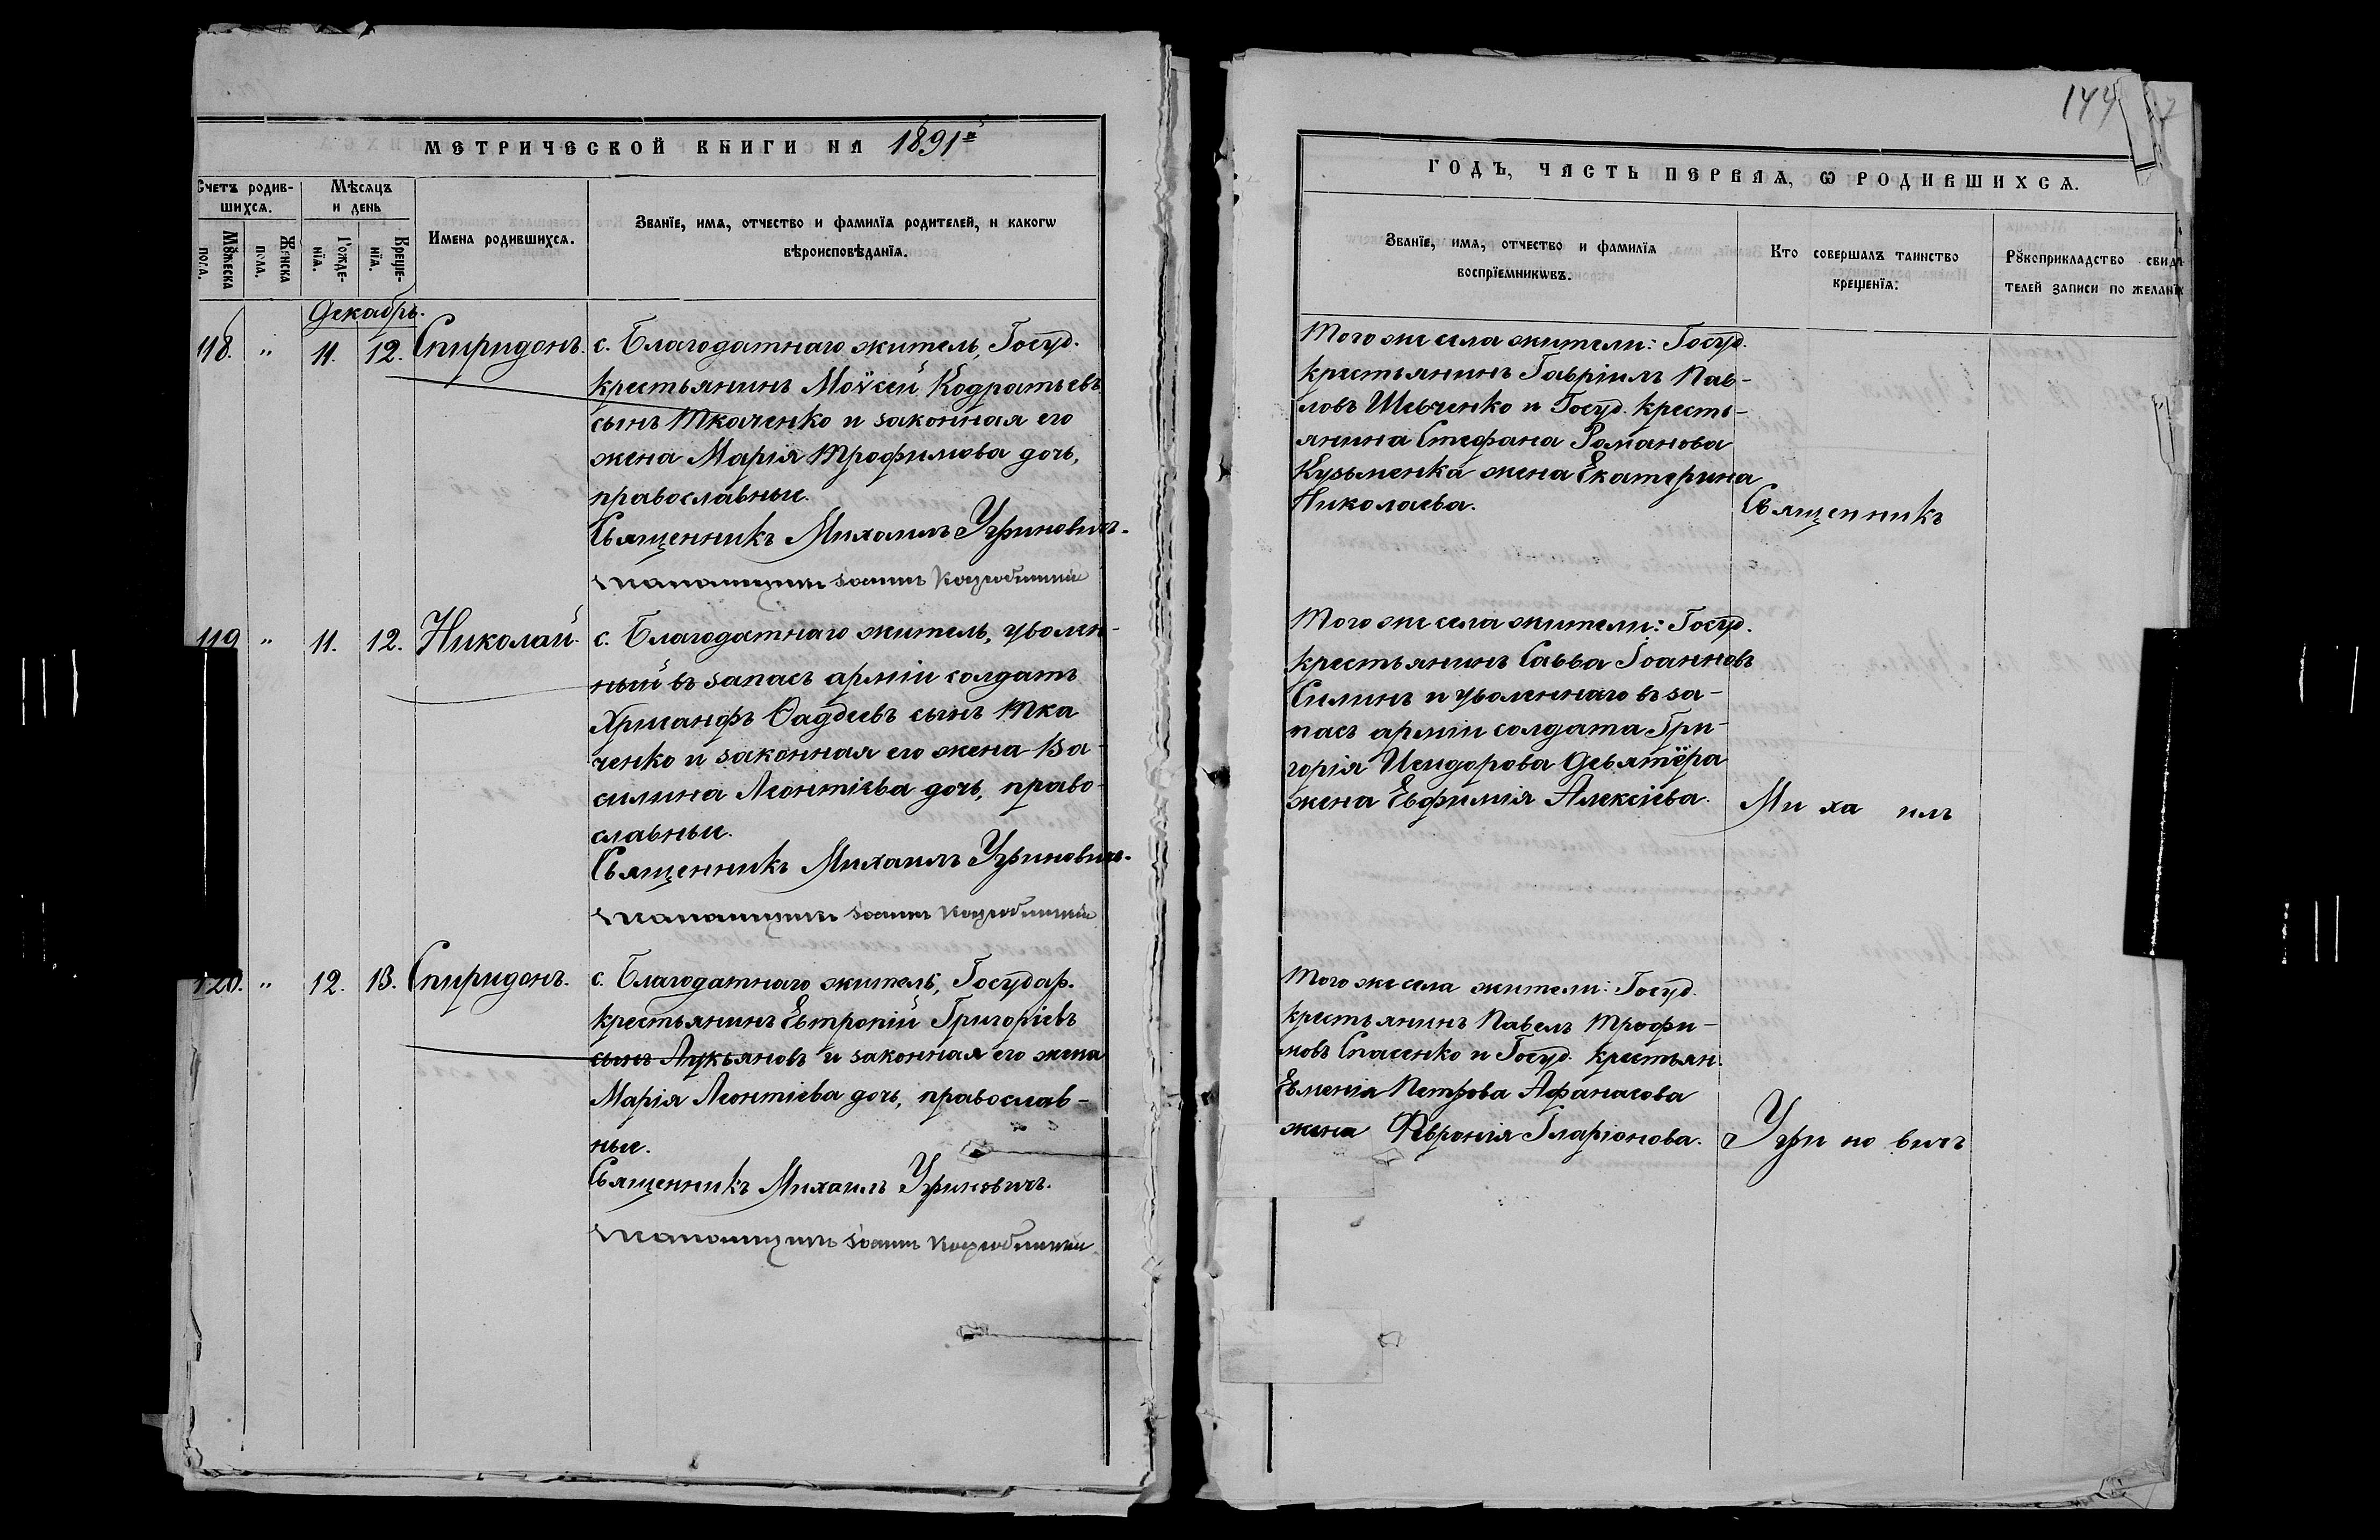 МЕТРИЧЕСКОЙ КНИГИ НА 1891й
Счетъ родив-
шихсѧ.
Мѣсѧцъ
и день
Мꙋжеска пола.
Женска пола.
Рожде-
нїѧ.
Креще-
нїѧ.
Имена родившихсѧ.
Званїе, имѧ, отчество и фамилїѧ родителей, и какогѡ
вѣроисповѣданїѧ.
Декабрь.
118. " 11. 12. Спиридонъ.
с. Благодатнаго житель, Госуд.
крестьянинъ Моѵсей Кодратьевъ
сынъ Ткаченко и законная его
жена Марія Трофимова дочь,
православные.
Священникъ Михаилъ Угриновичъ.
Іоаннъ
119 " 11. 12. Николай.
с. Благодатнаго житель, уволен-
ный въ запасъ арміи солдатъ
Хрисанфъ Ѳаддеевъ сынъ Тка
ченко и законная его жена Ва-
силина Леонтіева дочь, право-
славные.
Священникъ Михаилъ Угриновичъ.
Іоаннъ
120. " 12. 13. Спиридонъ.
с. Благодатнаго житель, Государ.
крестьянинъ Евтропій Григоріевъ
сынъ Лукьяновъ и законная его жена
Марія Леонтіева дочь, православ-
ные.
Священникъ Михаилъ Угриновичъ.
Іоаннъ
144
ГОДЪ, ЧАСТЬ ПЕРВАѦ, Ѡ РОДИВШИХСѦ.
Званїе, имѧ, отчество и фамилїѧ
воспрїемникѡвъ.
Кто совершалъ таинство
крещенїѧ:
Рꙋкоприкладство свидѣ
телей записи по желанїю
Того же села жители: Госуд.
крестьянинъ Гавріилъ Пав-
ловъ Шевченко и Госуд. кресть-
янина Стефана Романова
Кузьменка жена Екатерина
Николаева.
Священникъ
Того же села жители: Госуд.
крестьянинъ Савва Іоанновъ
Силинъ и уволеннаго въ за-
пасъ арміи солдата Гри-
горія Исидорова Девятёра
жена Евфимія Алексіева.
Ми ха илъ
Того же села жители: Госуд.
крестьянинъ Павелъ Трофи-
мовъ Спасенко и Госуд. крестьян.
Евменія Петрова Афанасова
жена Феvронія Іларіонова.
Угри но вичъ